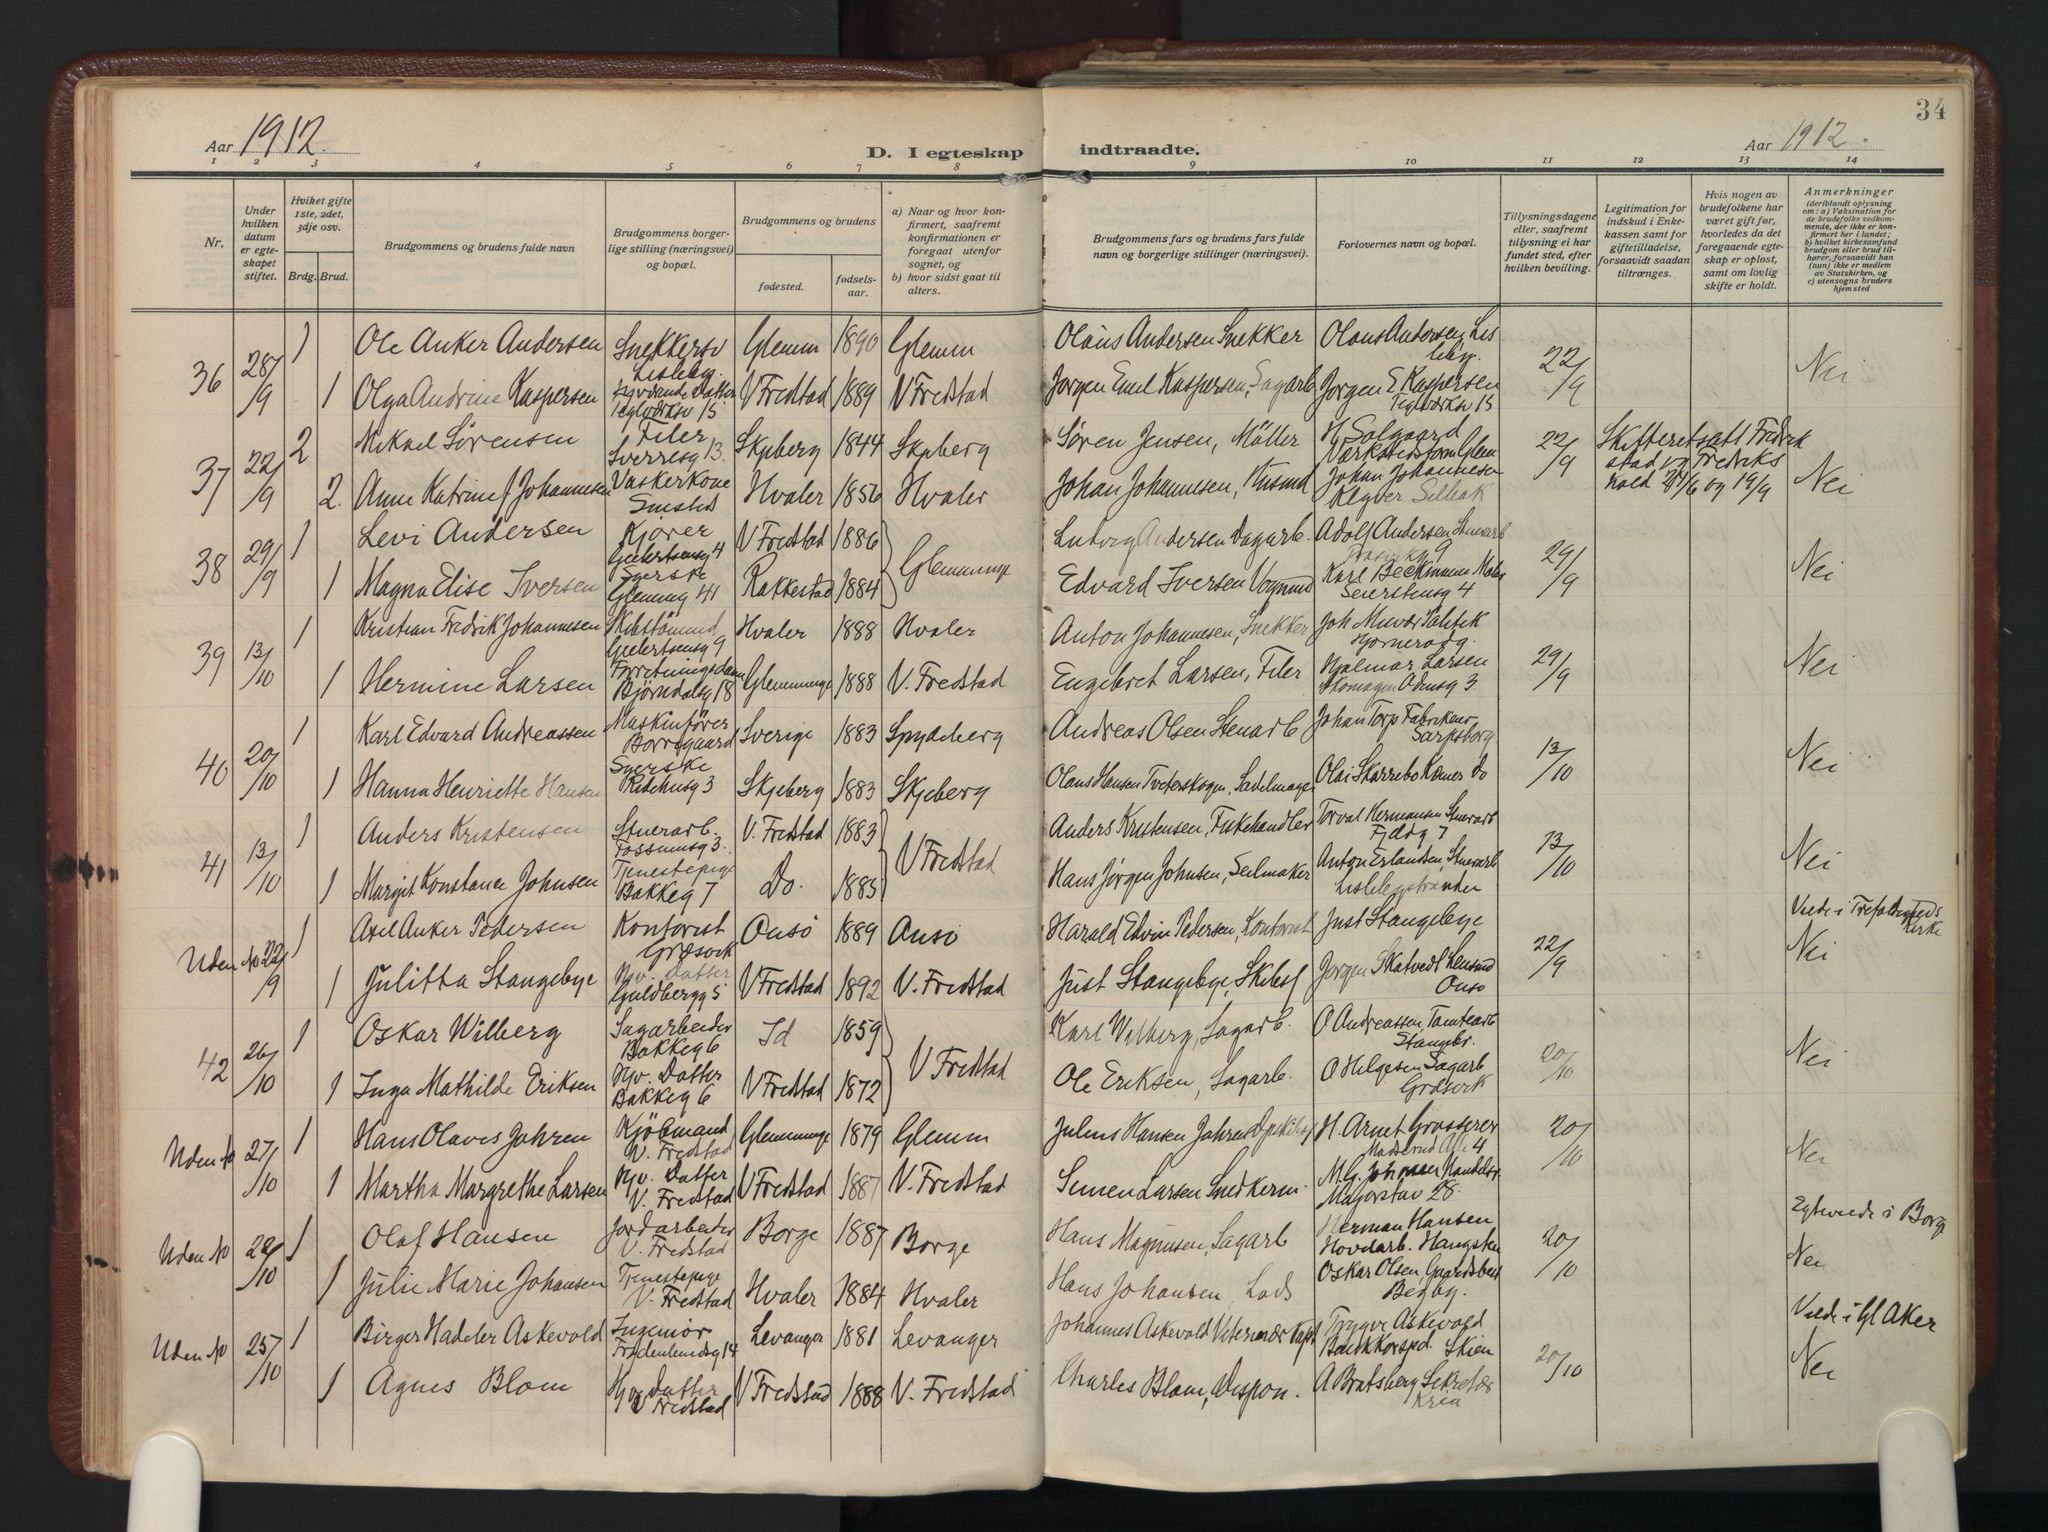 34
Aar 1912. D. I egteskap indtraadte. Aar 1912.
1 2 3 4 5 6 7 8 9 10 11 12 13 14
Nr.
Under hvilken datum er egteskapet stiftet.
Hviket gifte 1ste, 2det, 3dje osv.
Brdg. Brud.
Brudgommens og brudens fulde navn
Brudgommens borgerlige stilling (næringsvei) og bopæl.
Brudgommens og brudens
fødested. fødselsaar.
a) Naar og hvor konfirmert, saafremt konfirmationen er foregaat utenfor sognet, og
b) hvor sidst gaat til alters.
Brudgommens fars og brudens fars fulde navn og borgerlige stillinger (næringsvei).
Forlovernes navn og bopæl.
Tillysningsdagene eller, saafremt tillysning ei har fundet sted, efter hvilken bevilling.
Legitimation for indskud i Enkekassen samt for giftetilladelse, forsaavidt saadan tiltrænges.
Hvis nogen av brudefolkene har været gift før, hvorledes da det foregaaende egteskap er opløst, samt om lovlig skifte er holdt.
Anmerkninger
(deriblandt oplysning om: a) Vaksination for de brudefolks vedkommende, der ikke er konfirmert her i landet;
b) hvilket kirkesamfund brudgom eller brud tilhører, forsaavidt han (hun) ikke er medlem av Statskirken, og
c) utensogns bruders hjemsted
36 28/9 1 Ole Anker Andersen Snekkersv Lisleby. Glemm 1890 Glemm Olaus Andersen Snekker Olaus Andersen, Lisleby. 22/9 Nei
1 Olga Andrine Kaspersen Teglverksv 15 V Fredstad 1889 V Fredstad Jørgen Emil Kaspersen, Sagarb Jørgen E. Kaspersen Teglverksv 15
37 22/9 2 Mikael Sørensen Filer Sverresg 13. Skjeberg 1844 Skjeberg Søren Jensen, Møller H Solgaard 22/9 Skifteret satt Fredrikstad og Fredrikshald 27/6 og 19/9 Nei
2. Anne Katrine f Johannesen Vaskerkone Smstds Hvaler 1856 Hvaler Johan Johannesen, Husmd Johan Johannesen
38 29/9 1 Levi Andersen Kjører Geelertsensg 4 V Fredstad 1886 Glemminge Ludvig Andersen Dagarb. Adolf Andersen Stuerarb 9 29/9 Nei
1 Magna Elise Iversen Syerske Glemmg 41 Rakkestad 1884 Edvard Iversen Vognmd Karl Beckmann Maler Seierstensg 4
39 13/10 1 Kristian Fredrik Johannesen Skibstømmd Geelertsensg 9 Hvaler 1888 Hvaler Anton Johannesen, Snekker 29/9 Nei
1 Hermine Larsen Forretningsdame Bjørndalsg 18 Glemminge 1888 V. Fredstad Engebret Larsen, Filer Hjalmar Larsen Skomager Odensg 3
40 20/10 1 Karl Edvard Andreassen Maskinfører Borregaard Sverige 1883 Spydeberg Andreas Olsen Stenarb Johan Torp Fabrikeier Sarpsborg 13/10 Nei
1 Hanna Henriette Hansen Syerske 3 Skjeberg 1883 Skjeberg Olaus Hansen Tveterskogen, Sadelmager Olai Skarrebo Kæmer Do
41 13/10 1 Anders Kristensen Stuerarb. Fossumsg 3. V. Fredstad 1883 V Fredstad Anders Kristensen, Fiskehandler Torval Hermansen Stuerarb 7 13/10 Nei
1 Margit Konstance Johnsen Tjenestepige Bakkeg 7 Do. 1885 Hans Jørgen Johnsen, Seilmaker Anton Erlandsen, Stuerarb Lislebystranden
Uden No 22/9 1 Axel Anker Pedersen Kontorist Græsvik Onsø 1889 Onsø Harald Edvin Pedersen, Kontorist Just Stangebye 22/9 Viede i Trefoldigheds Kirke Nei
1 Julitta Stangebye Hjv. Datter Guldbergg 5 V Fredstad 1892 V. Fredstad Just Stangebye, Skibsf Jørgen Skatvedt Lensmd Onsø
42 26/10 1 Oskar Wilberg Sagarbeider Bakkeg 6 Id 1859 V Fredstad Karl Wilberg, Sagarb. O Andreassen, Tomtearb Stangebr. 20/10 Nei
1 Inga Mathilde Eriksen Hjv. Datter Bakkeg 6 V Fredstad 1872 Ole Eriksen, Sagarb. O Helgesen Sagarb Græsvik
Uden No 27/10 1 Hans Olaves Jahren Kjøbmand V. Fredstad Glemminge 1879 Glemm Julius Hansen Jahren H. Arnet Grosserer Madserud Alle 4 20/10 Nei
1 Martha Margrethe Larsen Hjv. Datter V. Fredstad V Fredstad 1887 V. Fredstad Simen Larsen Snedkerm. M. G. Johansen Handelsr. Majorstuv 28.
Uden No 28/10 1 Olaf Hansen Jordarbeider V. Fredstad Borge 1887 Borge Hans Magnusen, Sagarb Herman Hansen Hovdarb. 20/10 Egteviede i Borge Nei
1 Julie Marie Johansen Tjenestepige V. Fredstad Hvaler 1884 Hvaler Hans Johansen, Lods Oskar Olsen, Gaardsbest Begby.
Uden No 25/10 1 Birger Hadeler Askevold Ingeniør 14 Levanger 1881 Levanger Johannes Askevold Veterinær Kapt Trygve Askevold Bankkorspd. Skien 20/10 Viede i Gl Aker Nei
1 Agnes Blom Hjv Datter V Fredstad V Fredstad 1888 V. Fredstad Charles Blom, Dispon. A Bratsberg Sekretær Kria